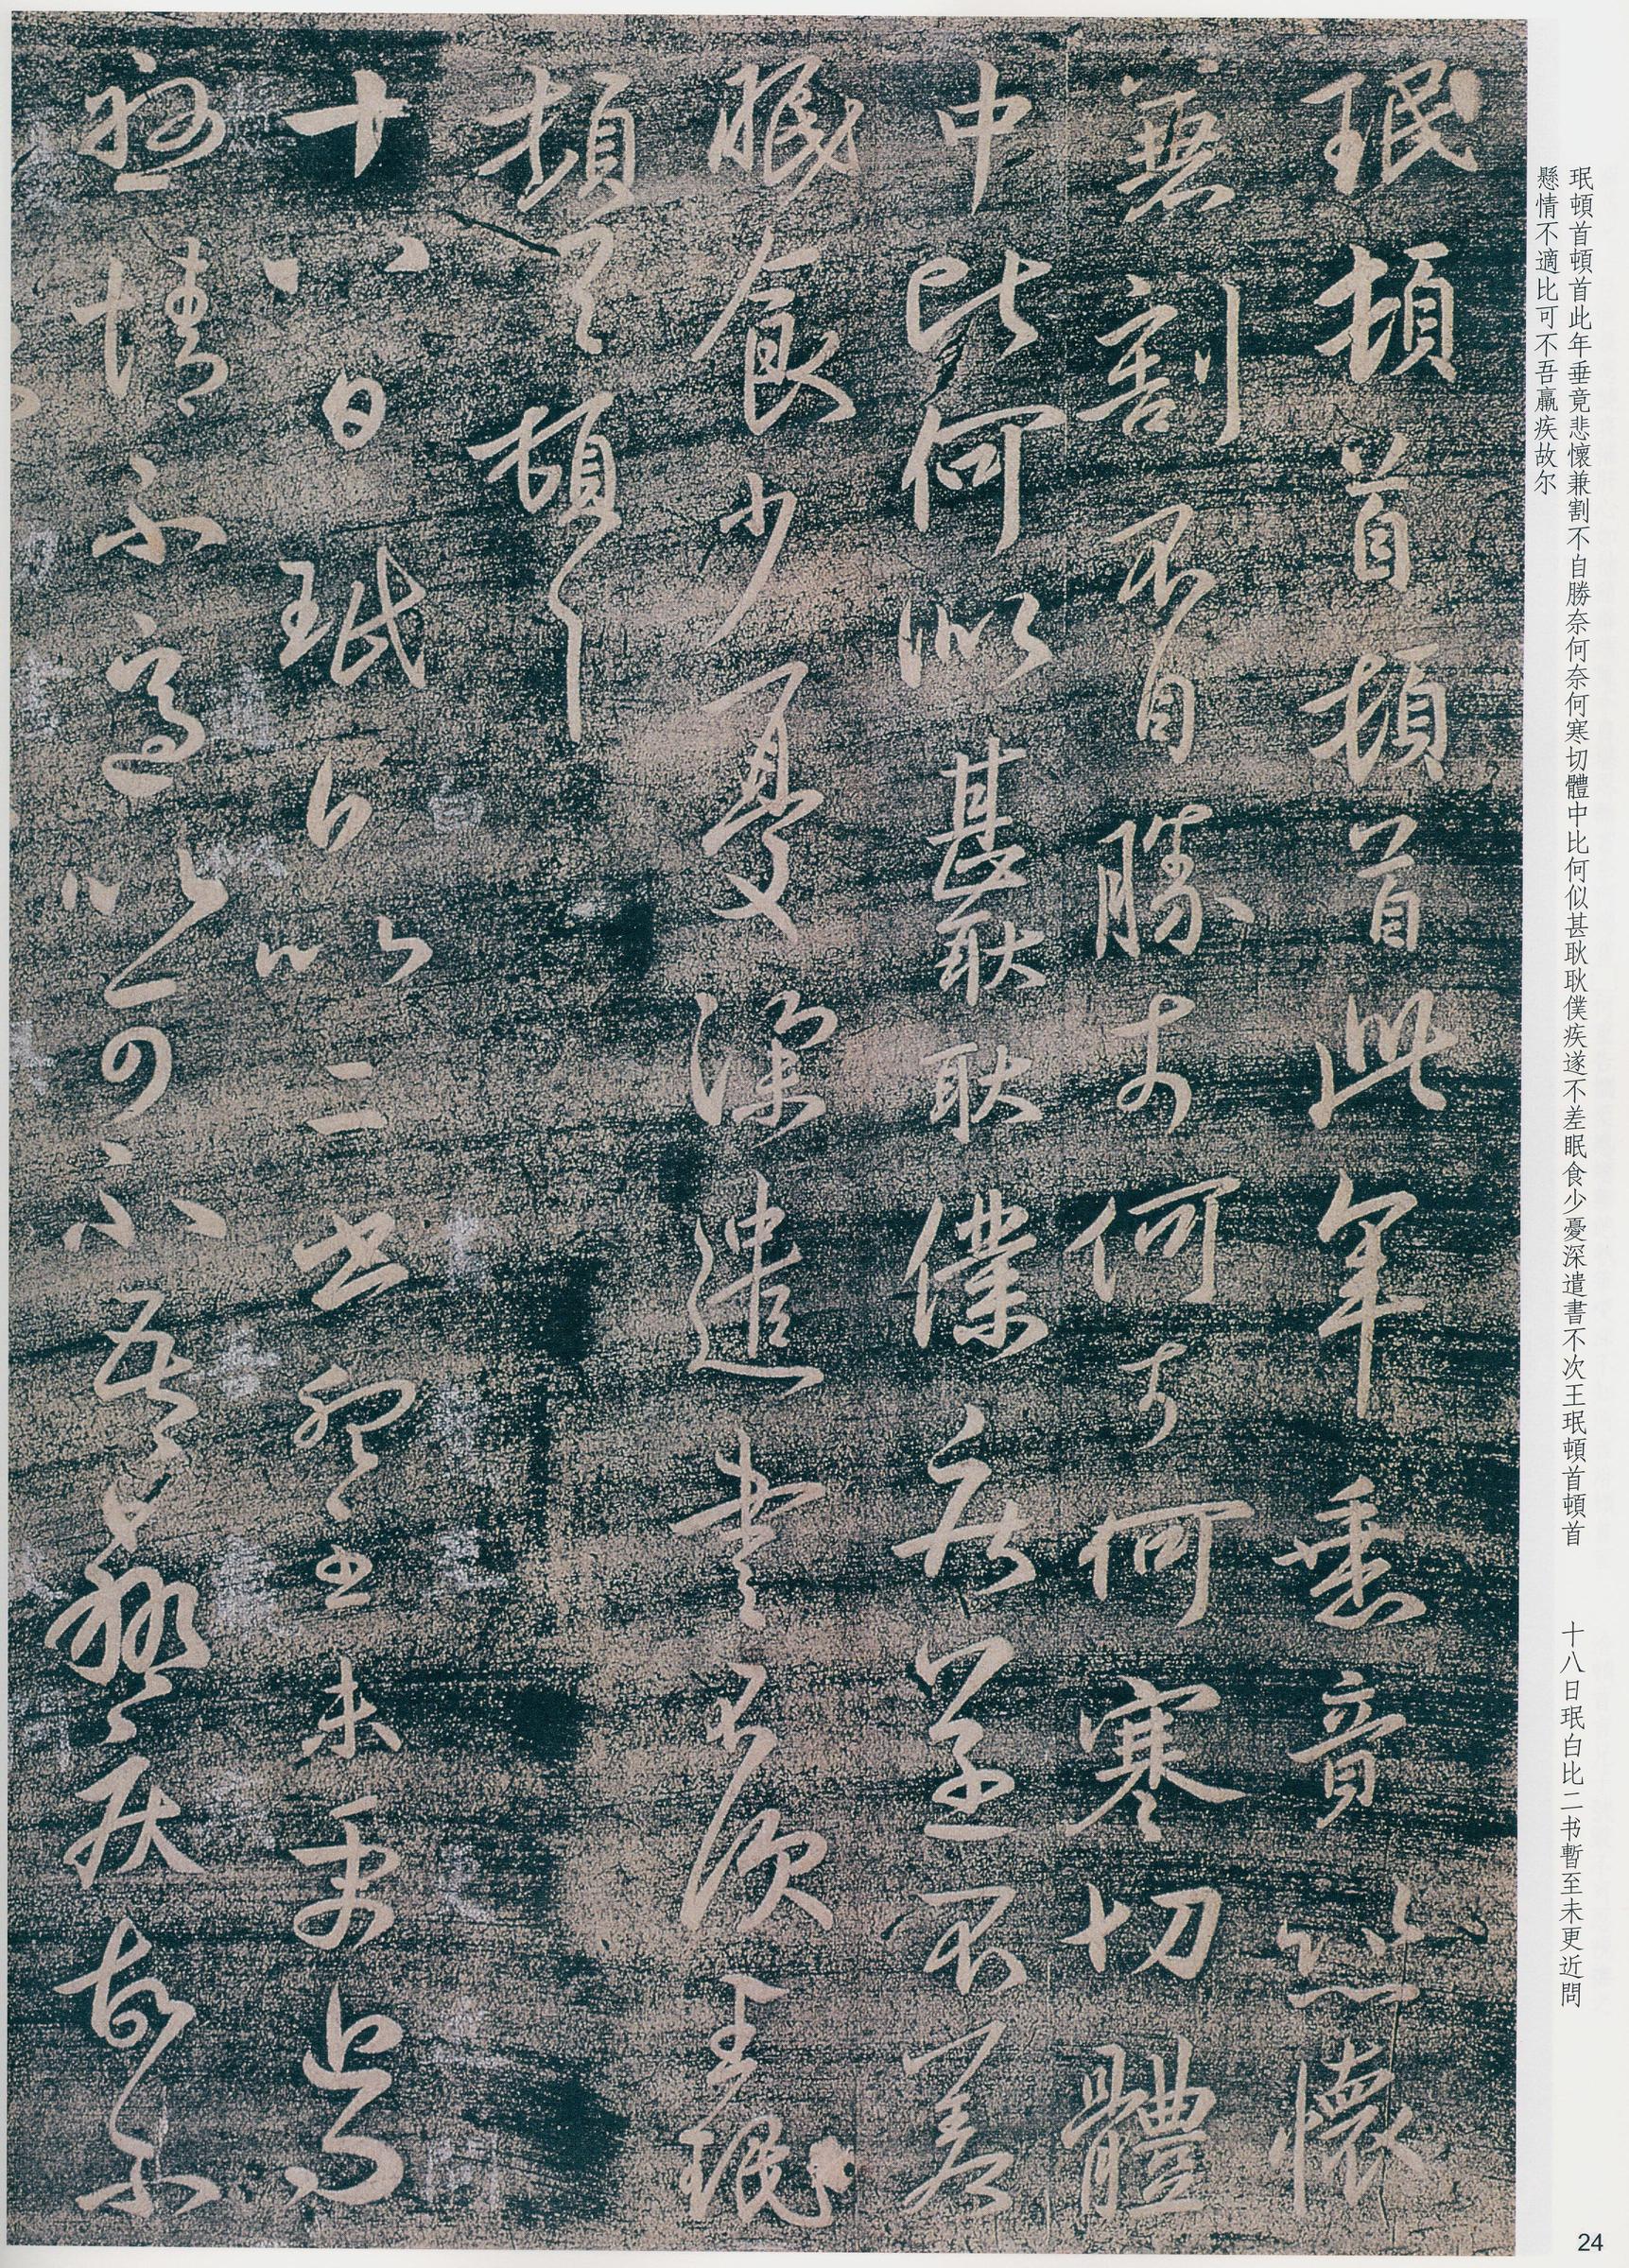 珉頓首頓首此年垂竟悲懷
兼割不自勝奈何奈何寒切體
中比何似甚耿耿僕疾遂不差
眠食少憂深遣書不次王珉
頓首頓首
十八日珉白比二书暫至未更近問
懸情不適比可不吾羸疾故尔
珉頓首頓首此年垂竟悲懷兼割不自勝奈何奈何寒切體中比何似甚耿耿僕疾遂不差眠食少憂深遣書不次王珉頓首頓首　十八日珉白比二书暫至未更近問
懸情不適比可不吾羸疾故尔
24